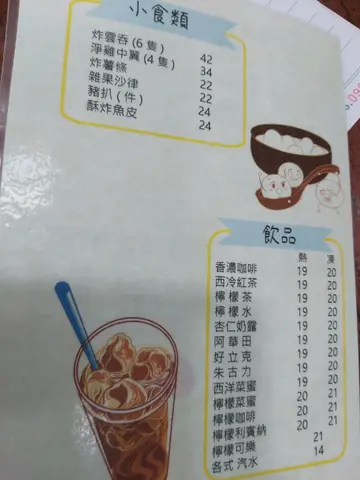 小食類
炸雲吞(6隻) 42
淨雞中翼(4隻) 34
炸薯條 22
雜果沙律 22
豬扒(件) 24
酥炸魚皮 24
飲品
熱 凍
香濃咖啡 19 20
西冷紅茶 19 20
檸檬茶 19 20
檸檬水 19 20
杏仁奶露 19 20
阿華田 19 20
好立克 19 20
朱古力 19 20
西洋菜蜜 20 21
檸檬菜蜜 20 21
檸檬咖啡 20 21
檸檬利賓納
檸檬可樂 21
各式汽水 14